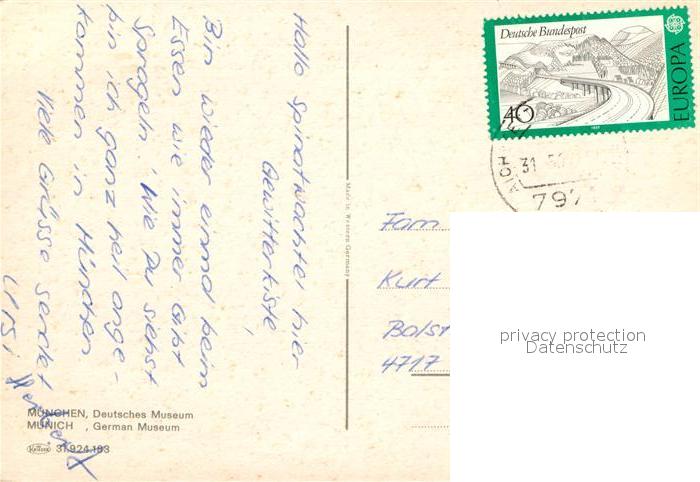 Hallo Spinatwachtel hier
Gewitterkiste,
Bin wieder einmal beim
Essen wie immer Gibt
Sprageln! Wie Du siehst
bin ich ganz heil ange-
kommen in München
Viele Grüsse sendet
Ursi
Herbert
MÜNCHEN, Deutsches Museum
MUNICH , German Museum
Krüger 31.924.183
Made in Western Germany
Deutsche Bundespost
40
EUROPA
1977
31
797
Fam
Kurt
Bolst
4717
privacy protection
Datenschutz